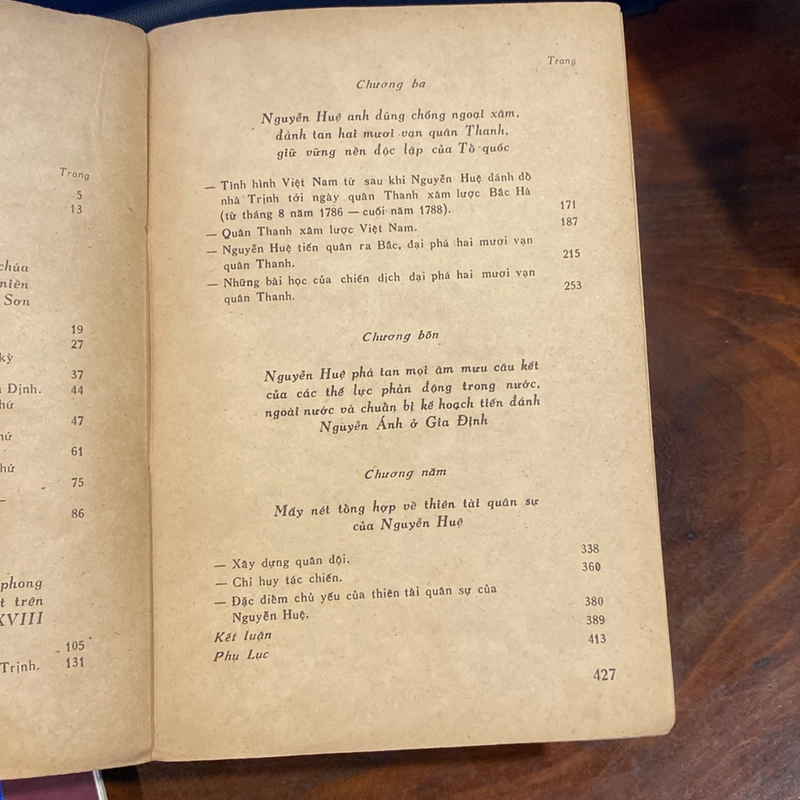 Trang
5
13
chúa
miền
Sơn
19
27
kỳ
37
Định. 44
hứ
47
hứ
61
hứ
75
—
86
phong
t trên
XVIII
105
Trịnh. 131
Trang
Chương ba
Nguyễn Huệ anh dũng chống ngoại xâm,
đánh tan hai mươi vạn quân Thanh,
giữ vững nền độc lập của Tổ quốc
— Tình hình Việt Nam từ sau khi Nguyễn Huệ đánh đổ
nhà Trịnh tới ngày quân Thanh xâm lược Bắc Hà
(từ tháng 8 năm 1786 — cuối năm 1788). 171
— Quân Thanh xâm lược Việt Nam. 187
— Nguyễn Huệ tiến quân ra Bắc, đại phá hai mươi vạn
quân Thanh. 215
— Những bài học của chiến dịch đại phá hai mươi vạn
quân Thanh. 253
Chương bốn
Nguyễn Huệ phá tan mọi âm mưu câu kết
của các thế lực phản động trong nước,
ngoài nước và chuẩn bị kế hoạch tiến đánh
Nguyễn Ánh ở Gia Định
Chương năm
Mấy nét tổng hợp về thiên tài quân sự
của Nguyễn Huệ
— Xây dựng quân đội. 338
— Chỉ huy tác chiến. 360
— Đặc điểm chủ yếu của thiên tài quân sự của
Nguyễn Huệ. 380
Kết luận 389
Phụ Lục 413
427